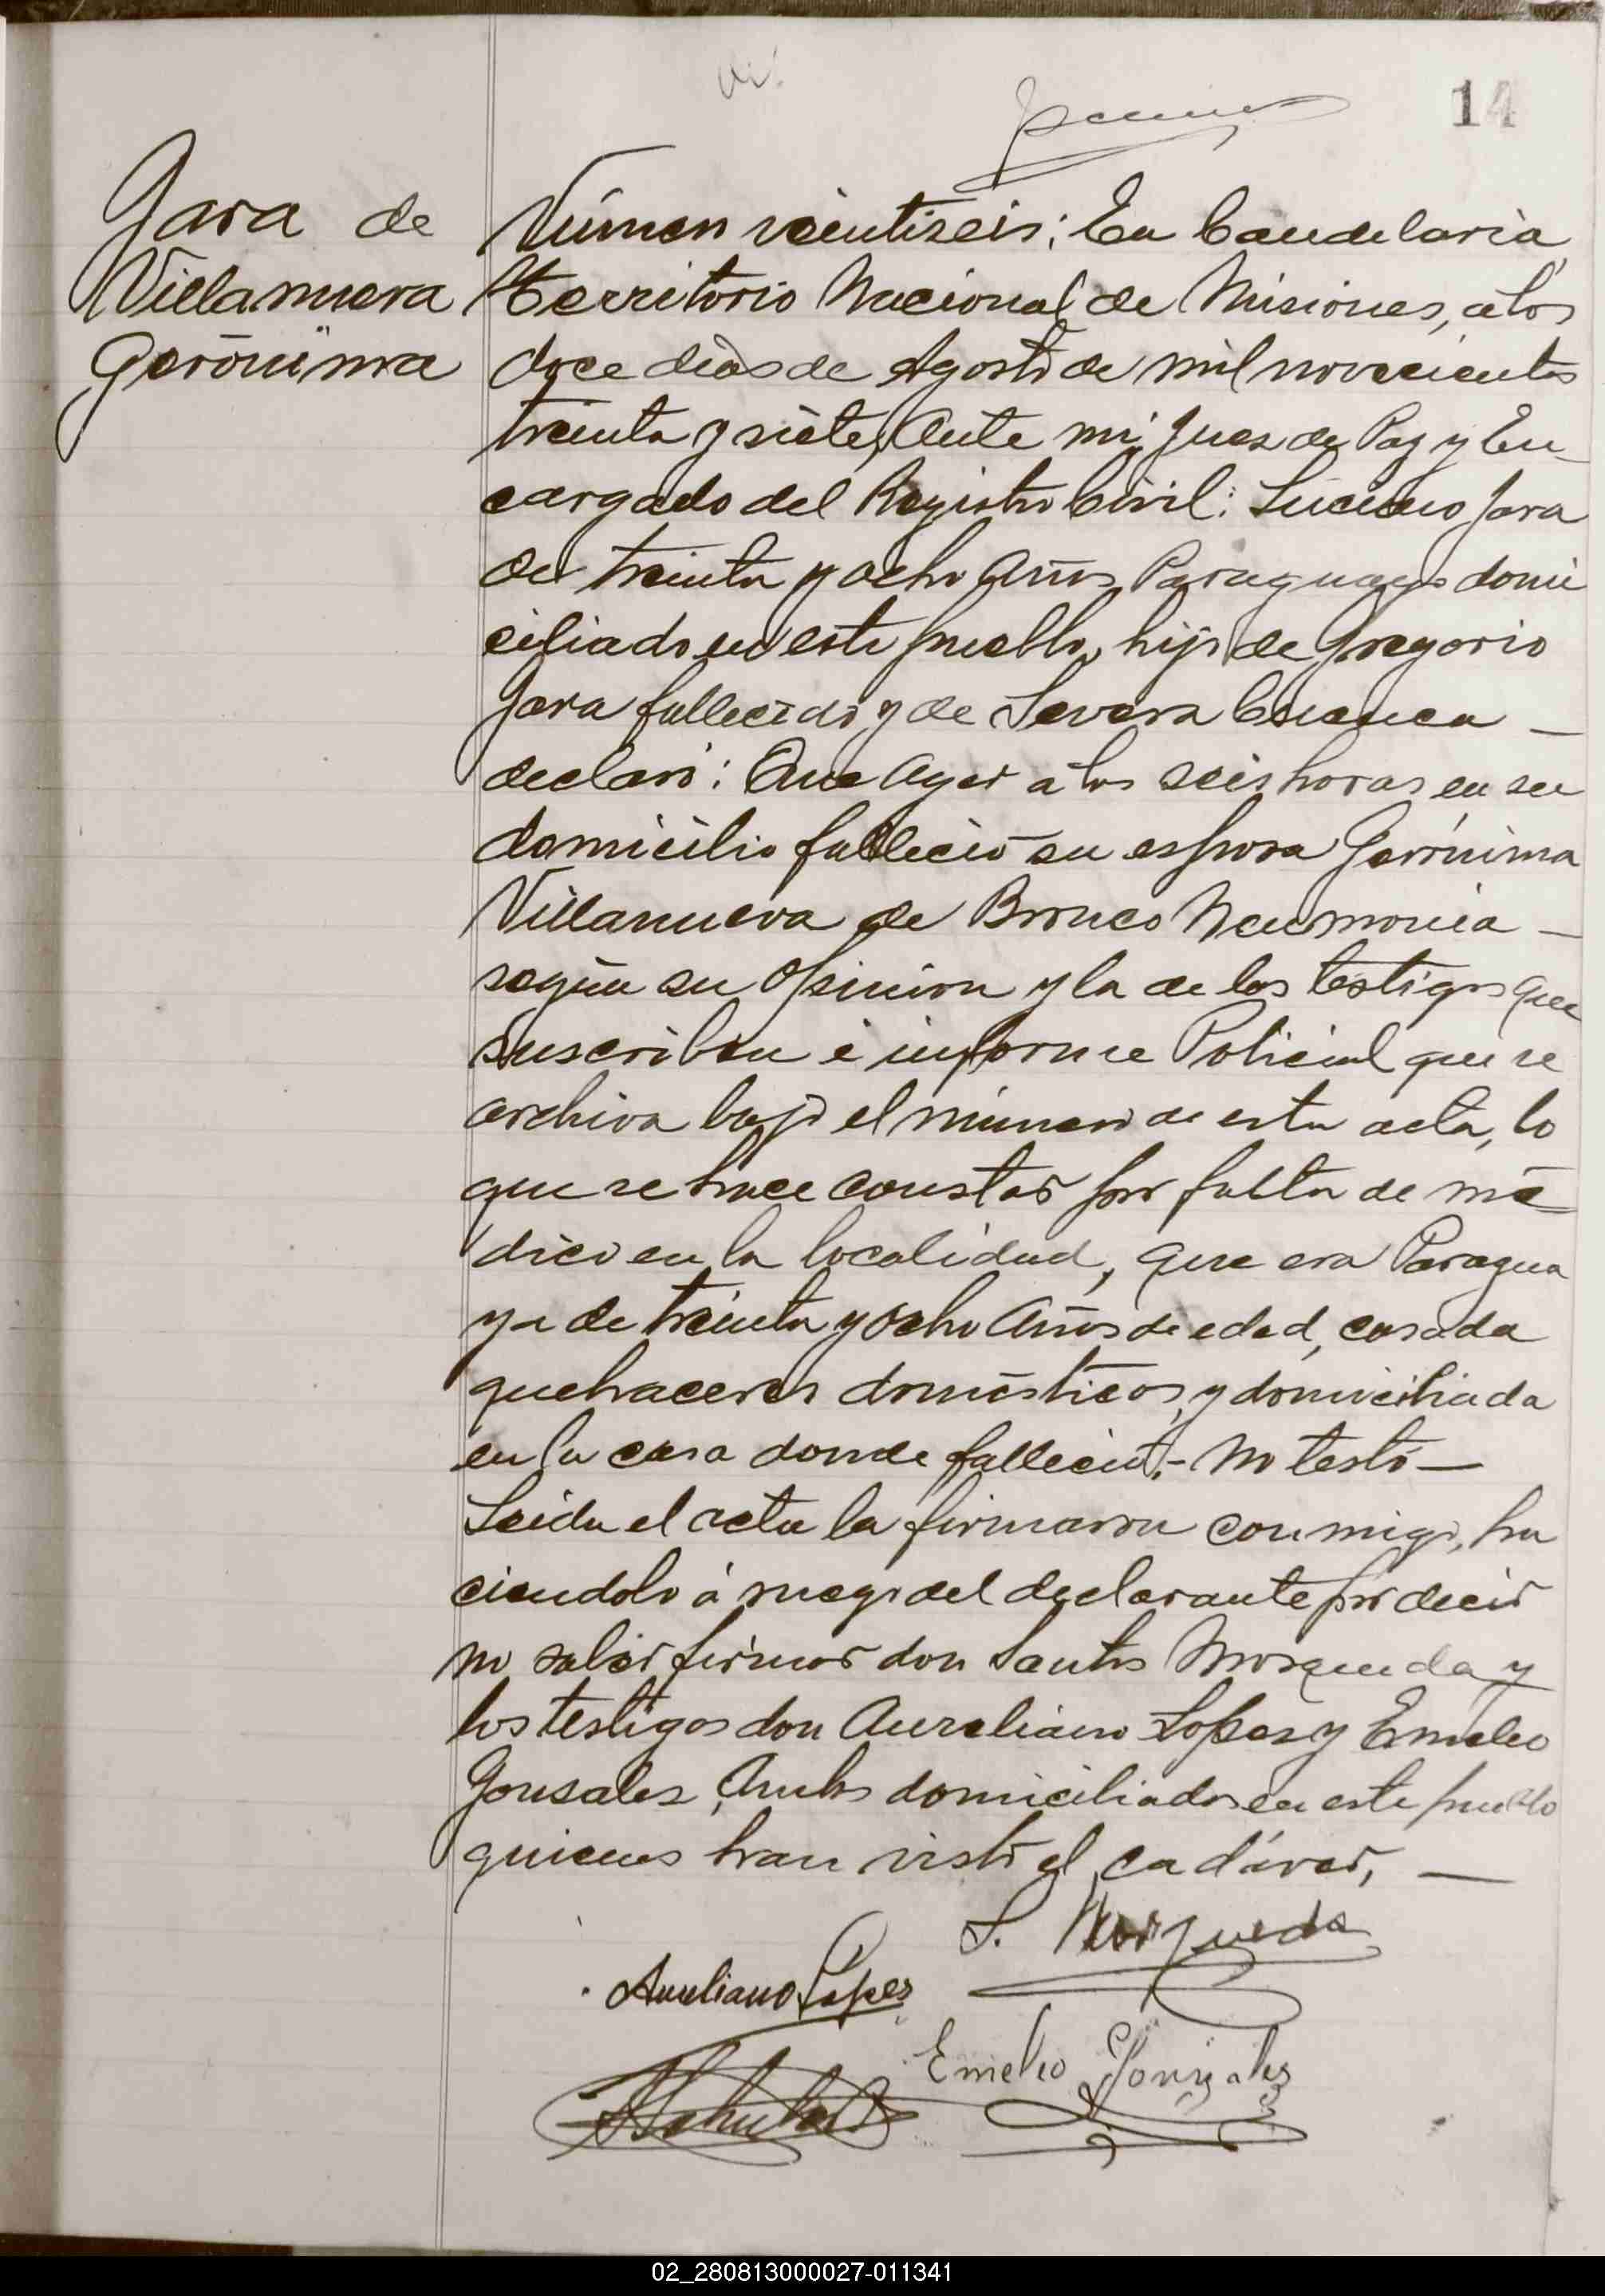 14
Jara de
Villanueva
Gerónima
Número veintiseis: En Candelaria,
Territorio Nacional de Misiones, a los
doce dias de Agosto de mil novecientos
treinta y siete, Ante mi, Juez de Paz y En-
cargado del Registro Civil: Luciano Jara
de treinta y ocho Años, Paraguayo domi
ciliado en este pueblo, hijo de Gregorio
Jara fallecido, y de Severa Cuenca —
declaró: Que Ayer á las seis horas en su
domicilio falleció su esposa Gerónima
Villanueva de Bronco Neumonia —
según su opinión y la de los testigos que
suscriben é informe Policial que se
archiva bajo el número de esta acta, lo
que se hace constar por falta de mé
dico en la localidad, que era Paragua
ya de treinta y ocho Años de edad, casada
quehaceres domésticos, y domiciliada
en la casa donde falleció.- No testó —
Leida el acta la firmaron conmigo, ha
ciendolo á ruego del declarante por decir
no saber firmar don Santos Mosqueda y
los testigos don Aureliano Lopes y Emelio
Gonsales, Ambos domiciliados en este pueblo
quienes han visto el cadáver, —
S. Mosqueda
Aureliano Lopes
Emelio Gonzales
02_280813000027-011341